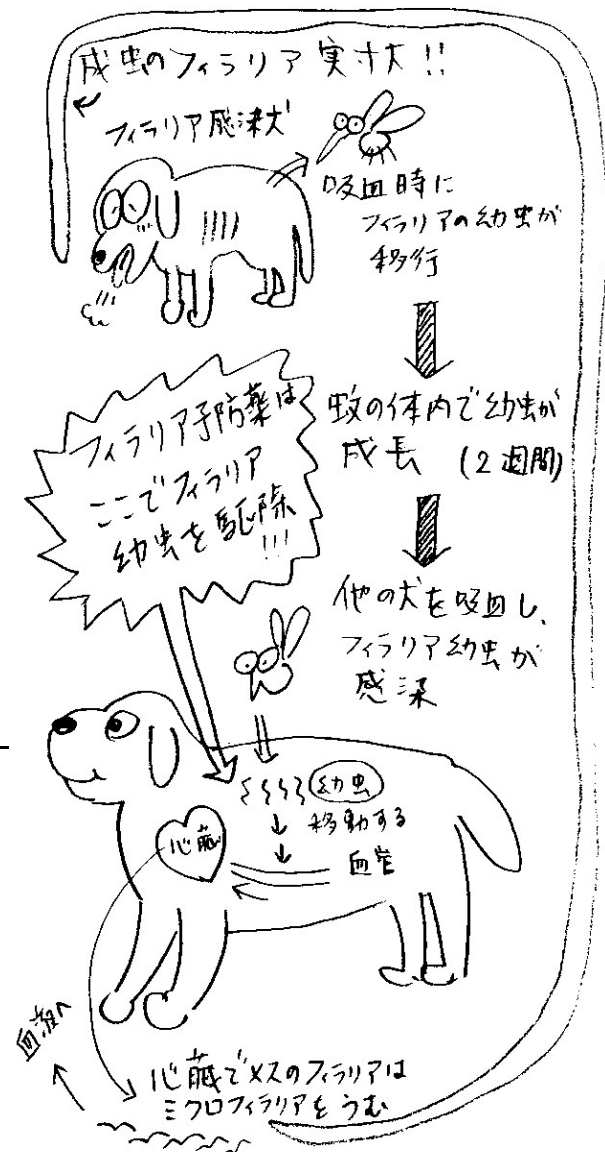 成虫のフィラリア実寸大!!
フィラリア感染犬
吸血時に
フィラリアの幼虫が
移行
蚊の体内で幼虫が
成長 (2週間)
フィラリア予防薬は
ここでフィラリア
幼虫を駆除
!!!
他の犬を吸血し、
フィラリア幼虫が
感染
幼虫
移動する
心臓
血管
血液へ
心臓でメスのフィラリアは
ミクロフィラリアをうむ